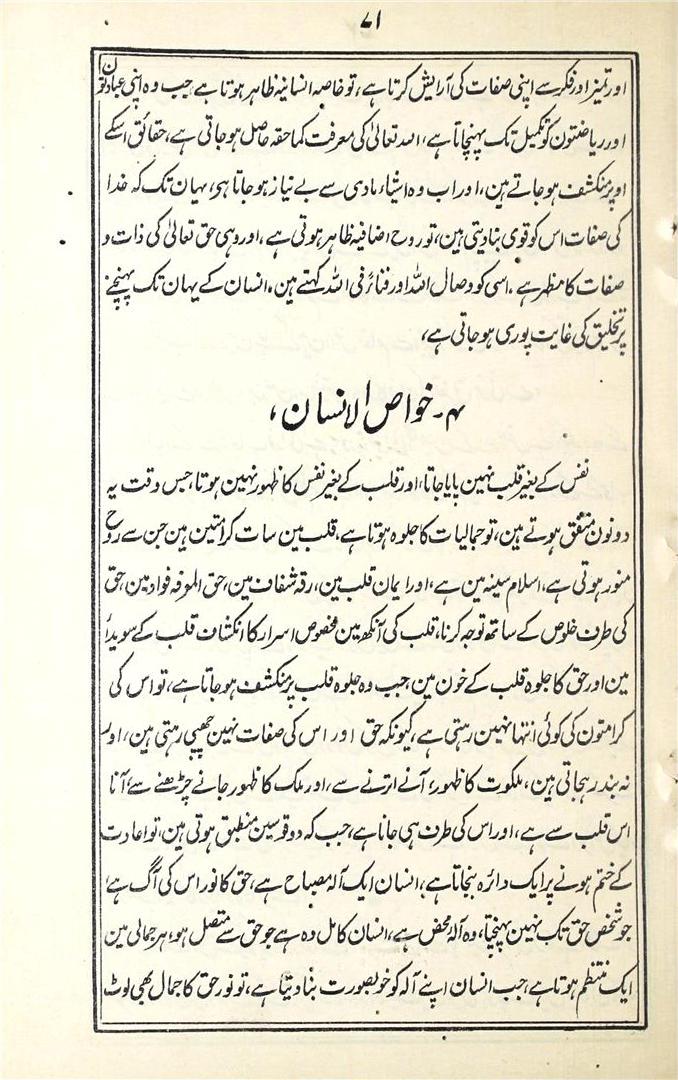 ۷۱
اور تمیز اور فکر سے اپنی صفات کی آرایش کرتا ہے، تو خاصہ انسانیہ ظاہر ہوتا ہے جب وہ اپنی عبادتون
اور ریاضتون کو تکمیل تک پہنچاتا ہے، اللہ تعالیٰ کی معرفت کماحقہ حاصل ہو جاتی ہے، حقائق اسکے
اوپر منکشف ہو جاتے ہین، اور اب وہ اشیاء مادی سے بے نیاز ہو جاتا ہی، یہان تک کہ خدا
کی صفات اس کو قوی بنا دیتی ہین، تو روح اضافیہ ظاہر ہوتی ہے، اور وہی حق تعالیٰ کی ذات و
صفات کا مظہر ہے، اسی کو وصال اللہ اور فناء فی اللہ کہتے ہین، انسان کے یہان تک پہنچنے
پر تخلیق کی غایت پوری ہو جاتی ہے،
۴۔ خواص الانسان،
نفس کے بغیر قلب نہین پایا جاتا، اور قلب کے بغیر نفس کا ظہور نہین ہوتا، جس وقت یہ
دونون متفق ہوتے ہین، تو جمالیات کا جلوہ ہوتا ہے، قلب مین سات کرامتین ہین جن سے روح
منور ہوتی ہے، اسلام سینہ مین ہے، اور ایمان قلب مین، رقہ شفاف مین، حق المعرفہ فواد مین، حق
کی طرف خلوص کے ساتھ توجہ کرنا، قلب کی آنکھ مین مخصوص اسرار کا انکشاف قلب کے سویدا
مین اور حق کا جلوہ قلب کے خون مین، جب وہ جلوہ قلب پر منکشف ہو جاتا ہے، تو اس کی
کرامتون کی کوئی انتہا نہین رہتی ہے، کیونکہ حق اور اس کی صفات نہین چھپی رہتی ہین، اور
نہ بند رہجاتی ہین، ملکوت کا ظہور، آنے اترنے سے، اور ملک کا ظہور جانے چڑھنے سے، آنا
اس قلب سے ہے، اور اس کی طرف ہی جانا ہے، جب کہ دو قوسین منطبق ہوتی ہین، تو اعادت
کے ختم ہونے پر ایک دائرہ بنجاتا ہے، انسان ایک آلہ مصباح ہے، حق کا نور اس کی آگ ہے،
جو شخص حق تک نہین پہنچتا، وہ آلہ محض ہے، انسان کامل وہ ہے جو حق سے متصل ہو، ہر جمالی مین
ایک منتظم ہوتا ہے، جب انسان اپنے آلہ کو خوبصورت بنا دیتا ہے، تو نور حق کا جمال بھی لوٹ